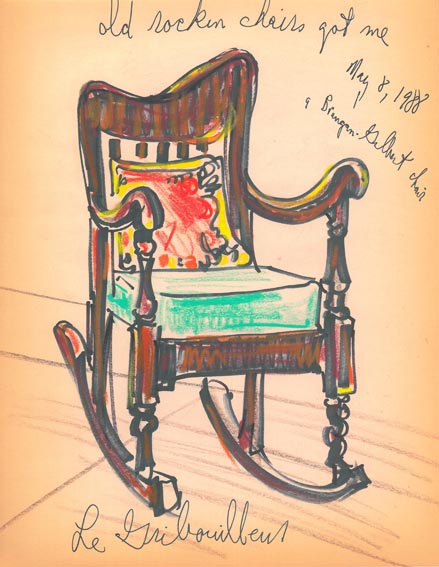 old rockin chairs got me
May 8, 1988
a Brangan-Gilbert chair
Le Gribouilleur